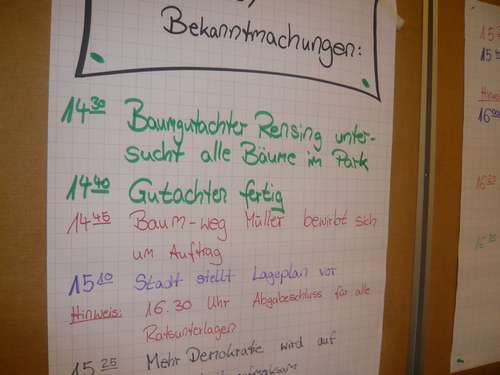 Bekanntmachungen:
14 30 Baumgutachter Rensing unter-
sucht alle Bäume im Park
14 40 Gutachten fertig
14 45 Baum-weg Müller bewirbt sich
um Auftrag
15 10 Stadt stellt Lageplan vor
Hinweis: 16.30 Uhr Abgabeschluss für alle
Ratsunterlagen
15 25 Mehr Demokratie wird auf